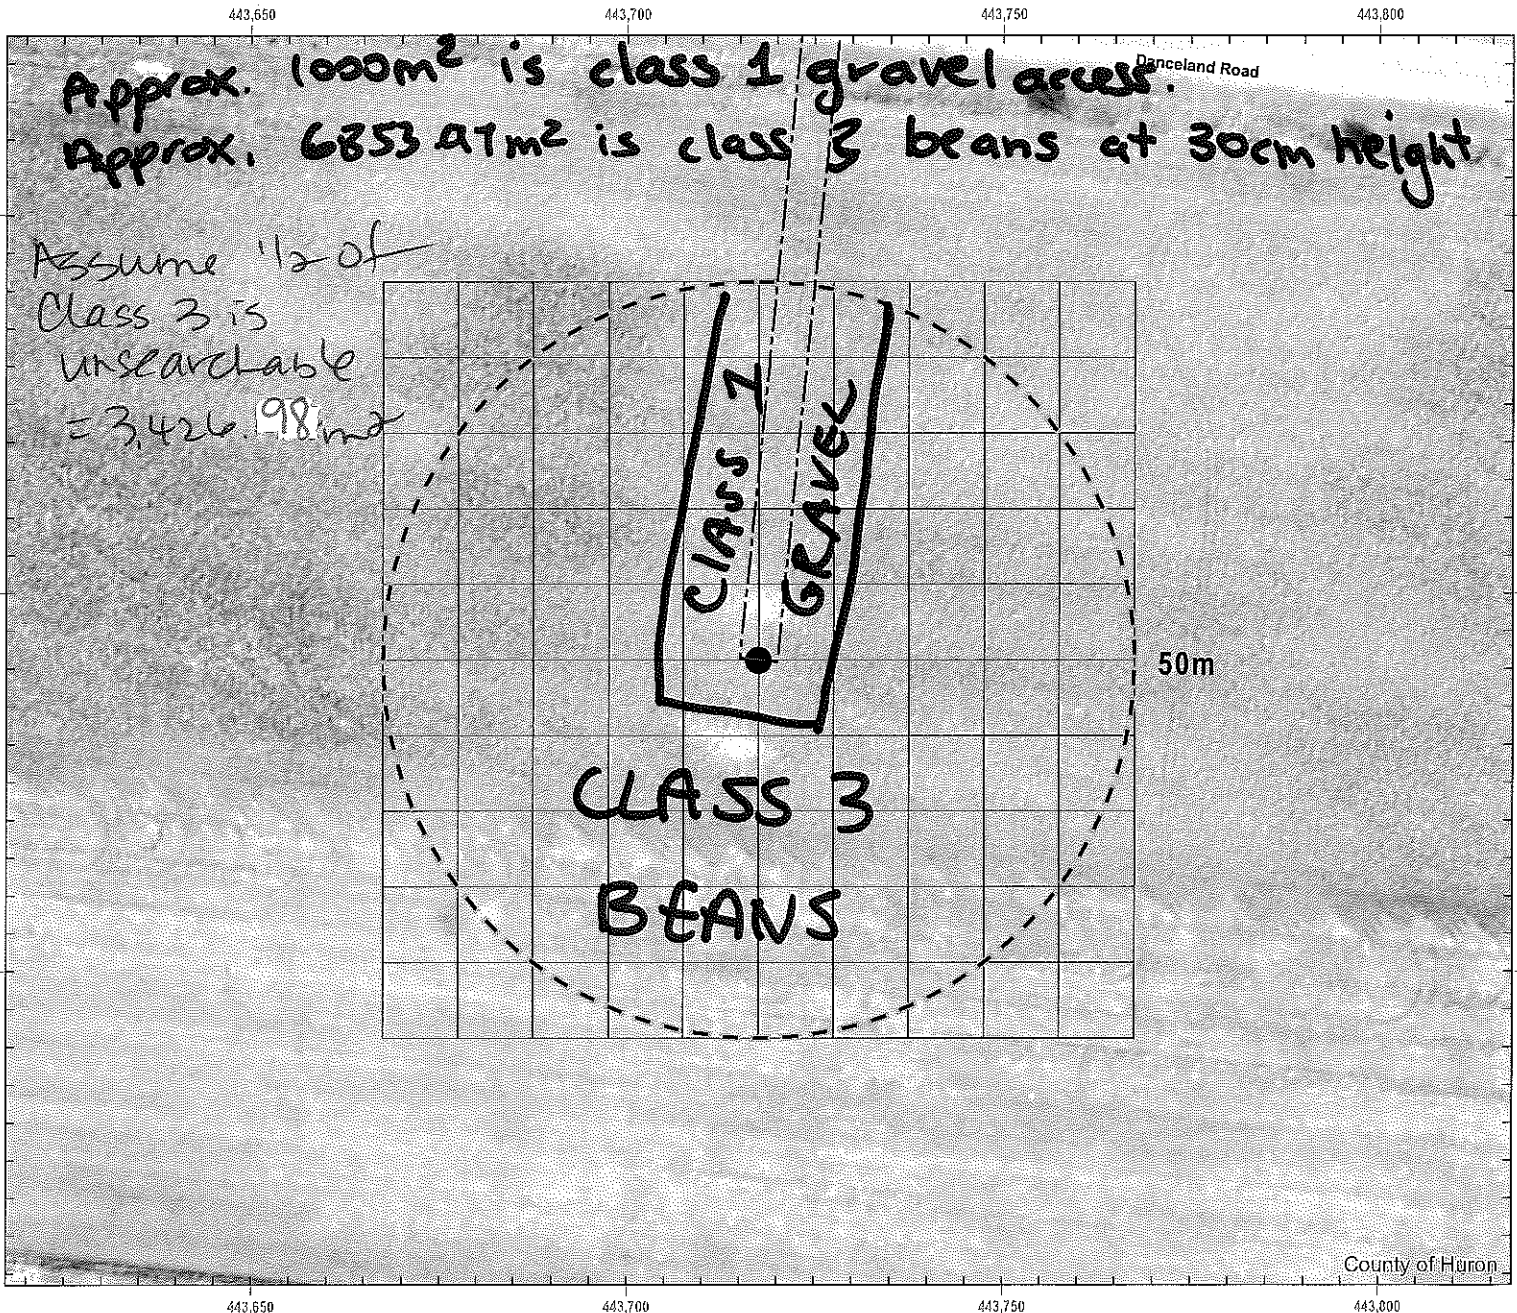 443,650 443,700 443,750 443,800
Danceland Road
Approx. 1000m² is class 1 gravel access.
Approx. 6853.97m² is class 3 beans at 30cm height
Assume 1/2 of
Class 3 is
unsearchable
= 3,426.98 m²
CLASS 1
GRAVEL
50m
CLASS 3
BEANS
County of Huron
443,650 443,700 443,750 443,800